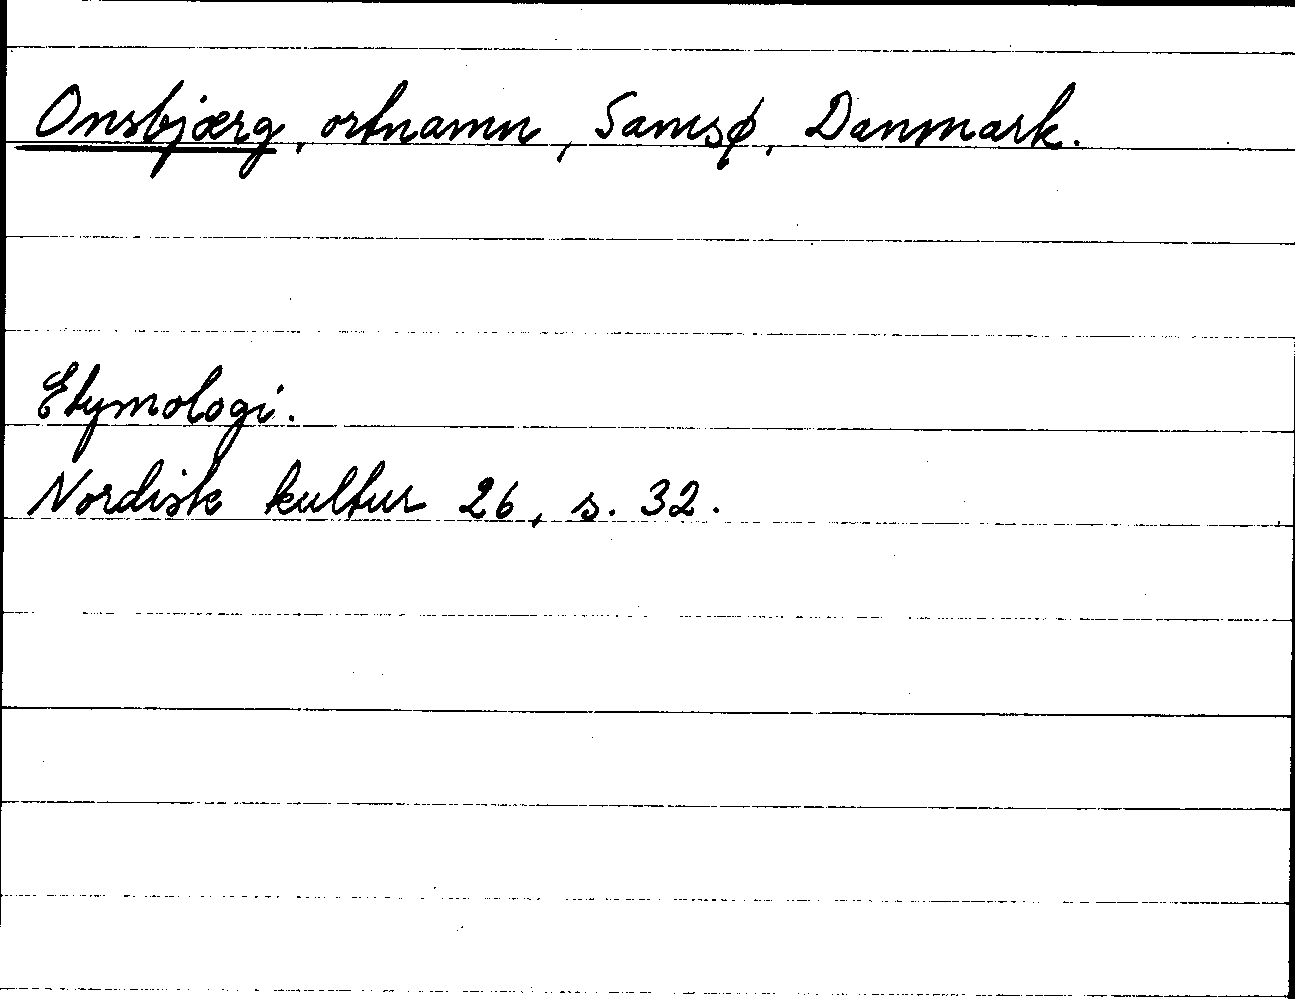 Onsbjærg, ortnamn, Samsø, Danmark.
Etymologi.
Nordisk kultur 26, s. 32.